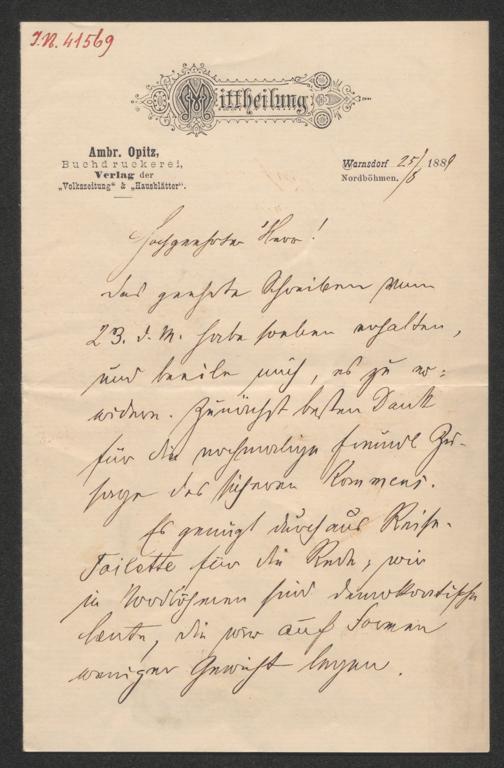 I.N. 41569
Mittheilung
Ambr. Opitz,
Buchdruckerei,
Verlag der
„Volkszeitung“ & „Hausblätter“.
Warnsdorf 25/8 1889
Nordböhmen.
Hochgeehrter Herr!
Das geehrte Schreiben vom
23. d. M. habe soeben erhalten,
und beeile mich, es zu er-
widern. Zunächst besten Dank
für die nochmalige freundl Zu-
sage des sicheren Kommens.
Es genügt durchaus Reise-
Toilette für die Rede, wir
in Nordböhmen sind demokratische
Leute, die wir auf Formen
weniger Gewicht legen.